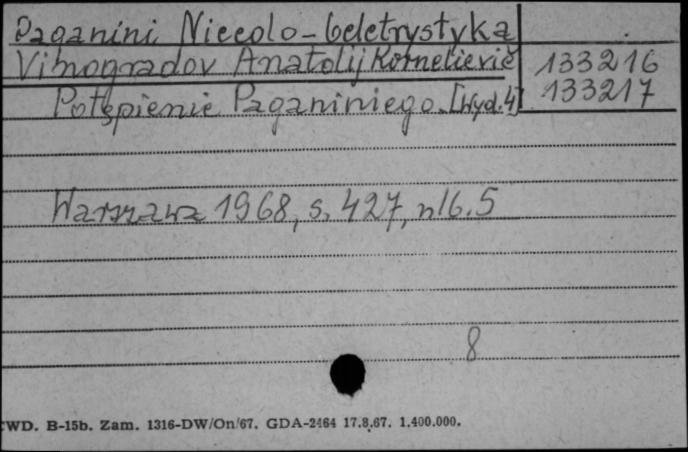 Paganini Niccolo - beletrystyka
Vinogradov Anatolij Kornelievič 133216
Potępienie Paganiniego. [Wyd. 4] 133217
Warszawa 1968, s. 427, nl 6. 5
8
WD. B-15b. Zam. 1316-DW/On/67. GDA-2464 17.8.67. 1.400.000.